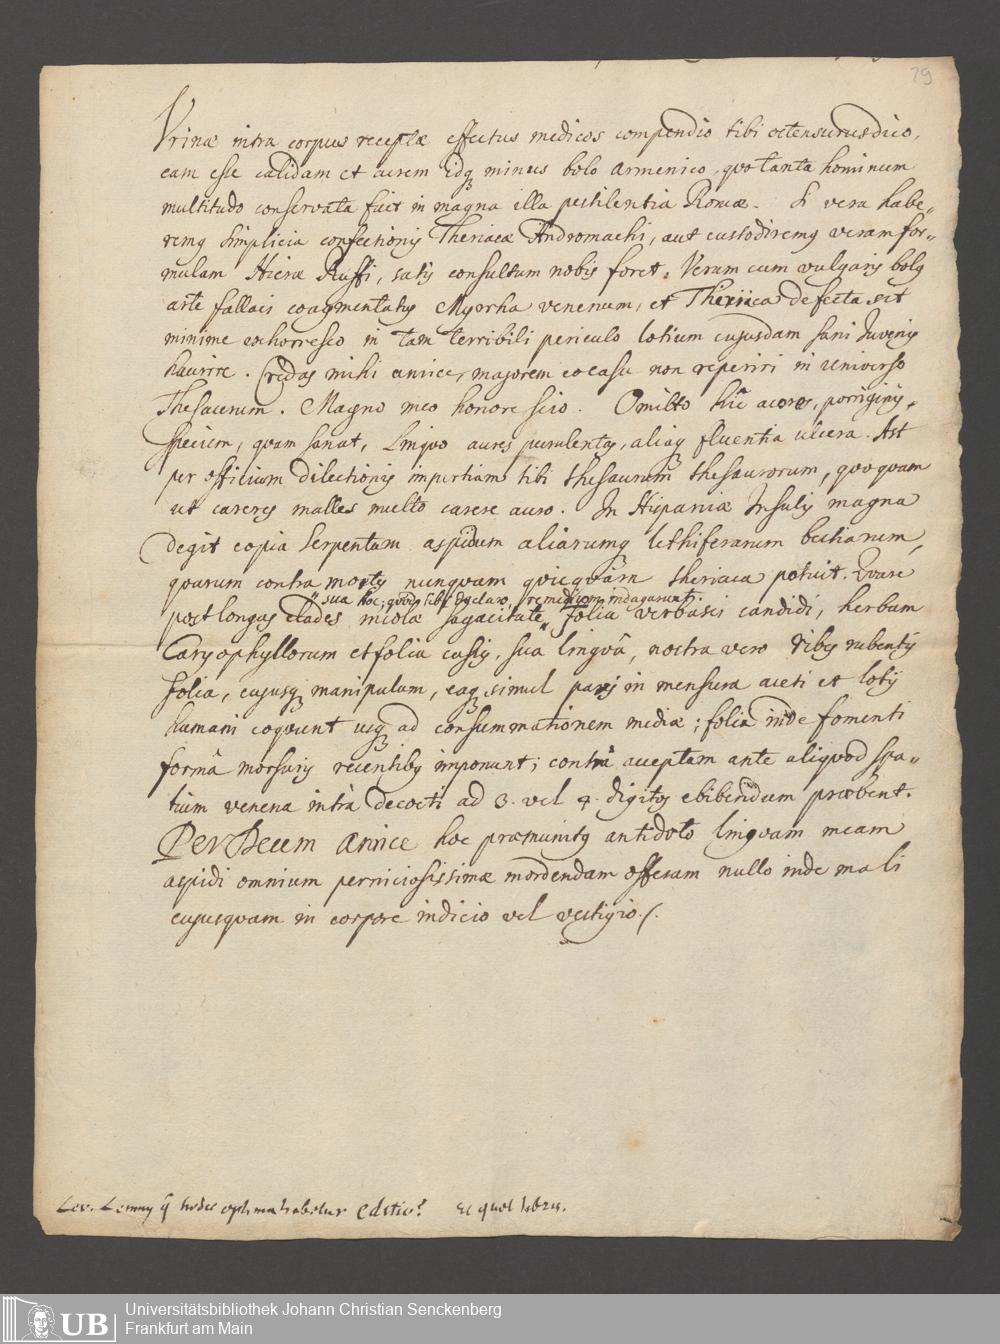 79
Vrinae intra corpus receptae effectus medicos compendio tibi ostensurus dico,
eam esse calidam et acrem idq minus bolo armenico, quo tanta hominum
multitudo conservata fuit in magna illa pestilentia Romae. Si vera habe„
remq simplicia confectionis Theriacae Andromachi, aut custodiremq veram for„
mulam Hierae Ruffi, satis consultum nobis foret. Verum cum vulgaris bolq
arte fallaci coagmentatus Myrrha venenum, et Theriaca defecta sit
minime exhorresco in tam terribili periculo lotium cujusdam sani Juvenis
haurire. Credas mihi amice, majorem eo casu non reperiri in universo
Thesaurum. Magno meo honore scio. Omitto hic acores, porriginis
speciem, quam sanat, Linquo aures purulentas, aliaq fluentia ulcera. Ast
per officium dilectionis impertiam tibi thesaurum thesaurorum, quo quam
ut careres malles multo carere auro. In Hispaniae Insulis magna
degit copia Serpentum aspidum aliarumq lethiferarum bestiarum,
quarum contra morsus nunquam quicquam theriaca potuit. Quare
„sua hoc, quod tibi declaro, remedium indagarunt.
post longas clades incolae sagacitate„ folia verbasci candidi, herbam
Caryophyllorum et folia casis, sua linguâ, nostra vero ribis rubentis
folia, cujusq manipulum, eaq simul paris in mensura aceti et lotij
humani coquunt usq ad consummationem mediae; folia inde fomenti
formâ morsuris recentibq imponunt; contra acceptam ante aliquod spa„
tium venena intra decocti ad 3. vel 4. digitos ebibendum praebent.
Per Deum amice hoc praemunitus antidoto linguam meam
aspidi omnium perniciosissimae mordendam offeram nullo inde mali
cujusquam in corpore indicio vel vestigio./.
Lev. Lemny q hodie optima habetur Editio? et quot libri.
UB
Universitätsbibliothek Johann Christian Senckenberg
Frankfurt am Main